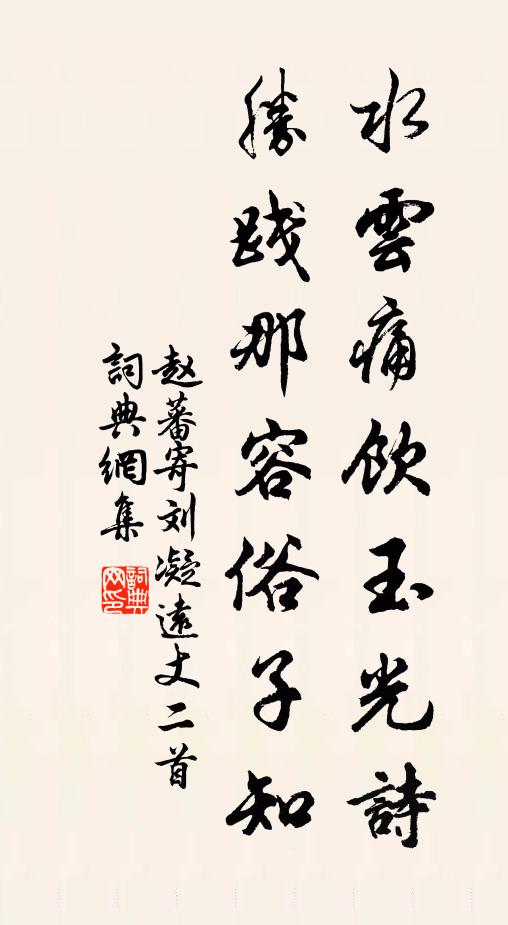 水雲痛飲玉光詩
勝踐那容俗子知
赵蕃寄刘凝遠丈二首
詞典網集
詞典
网印